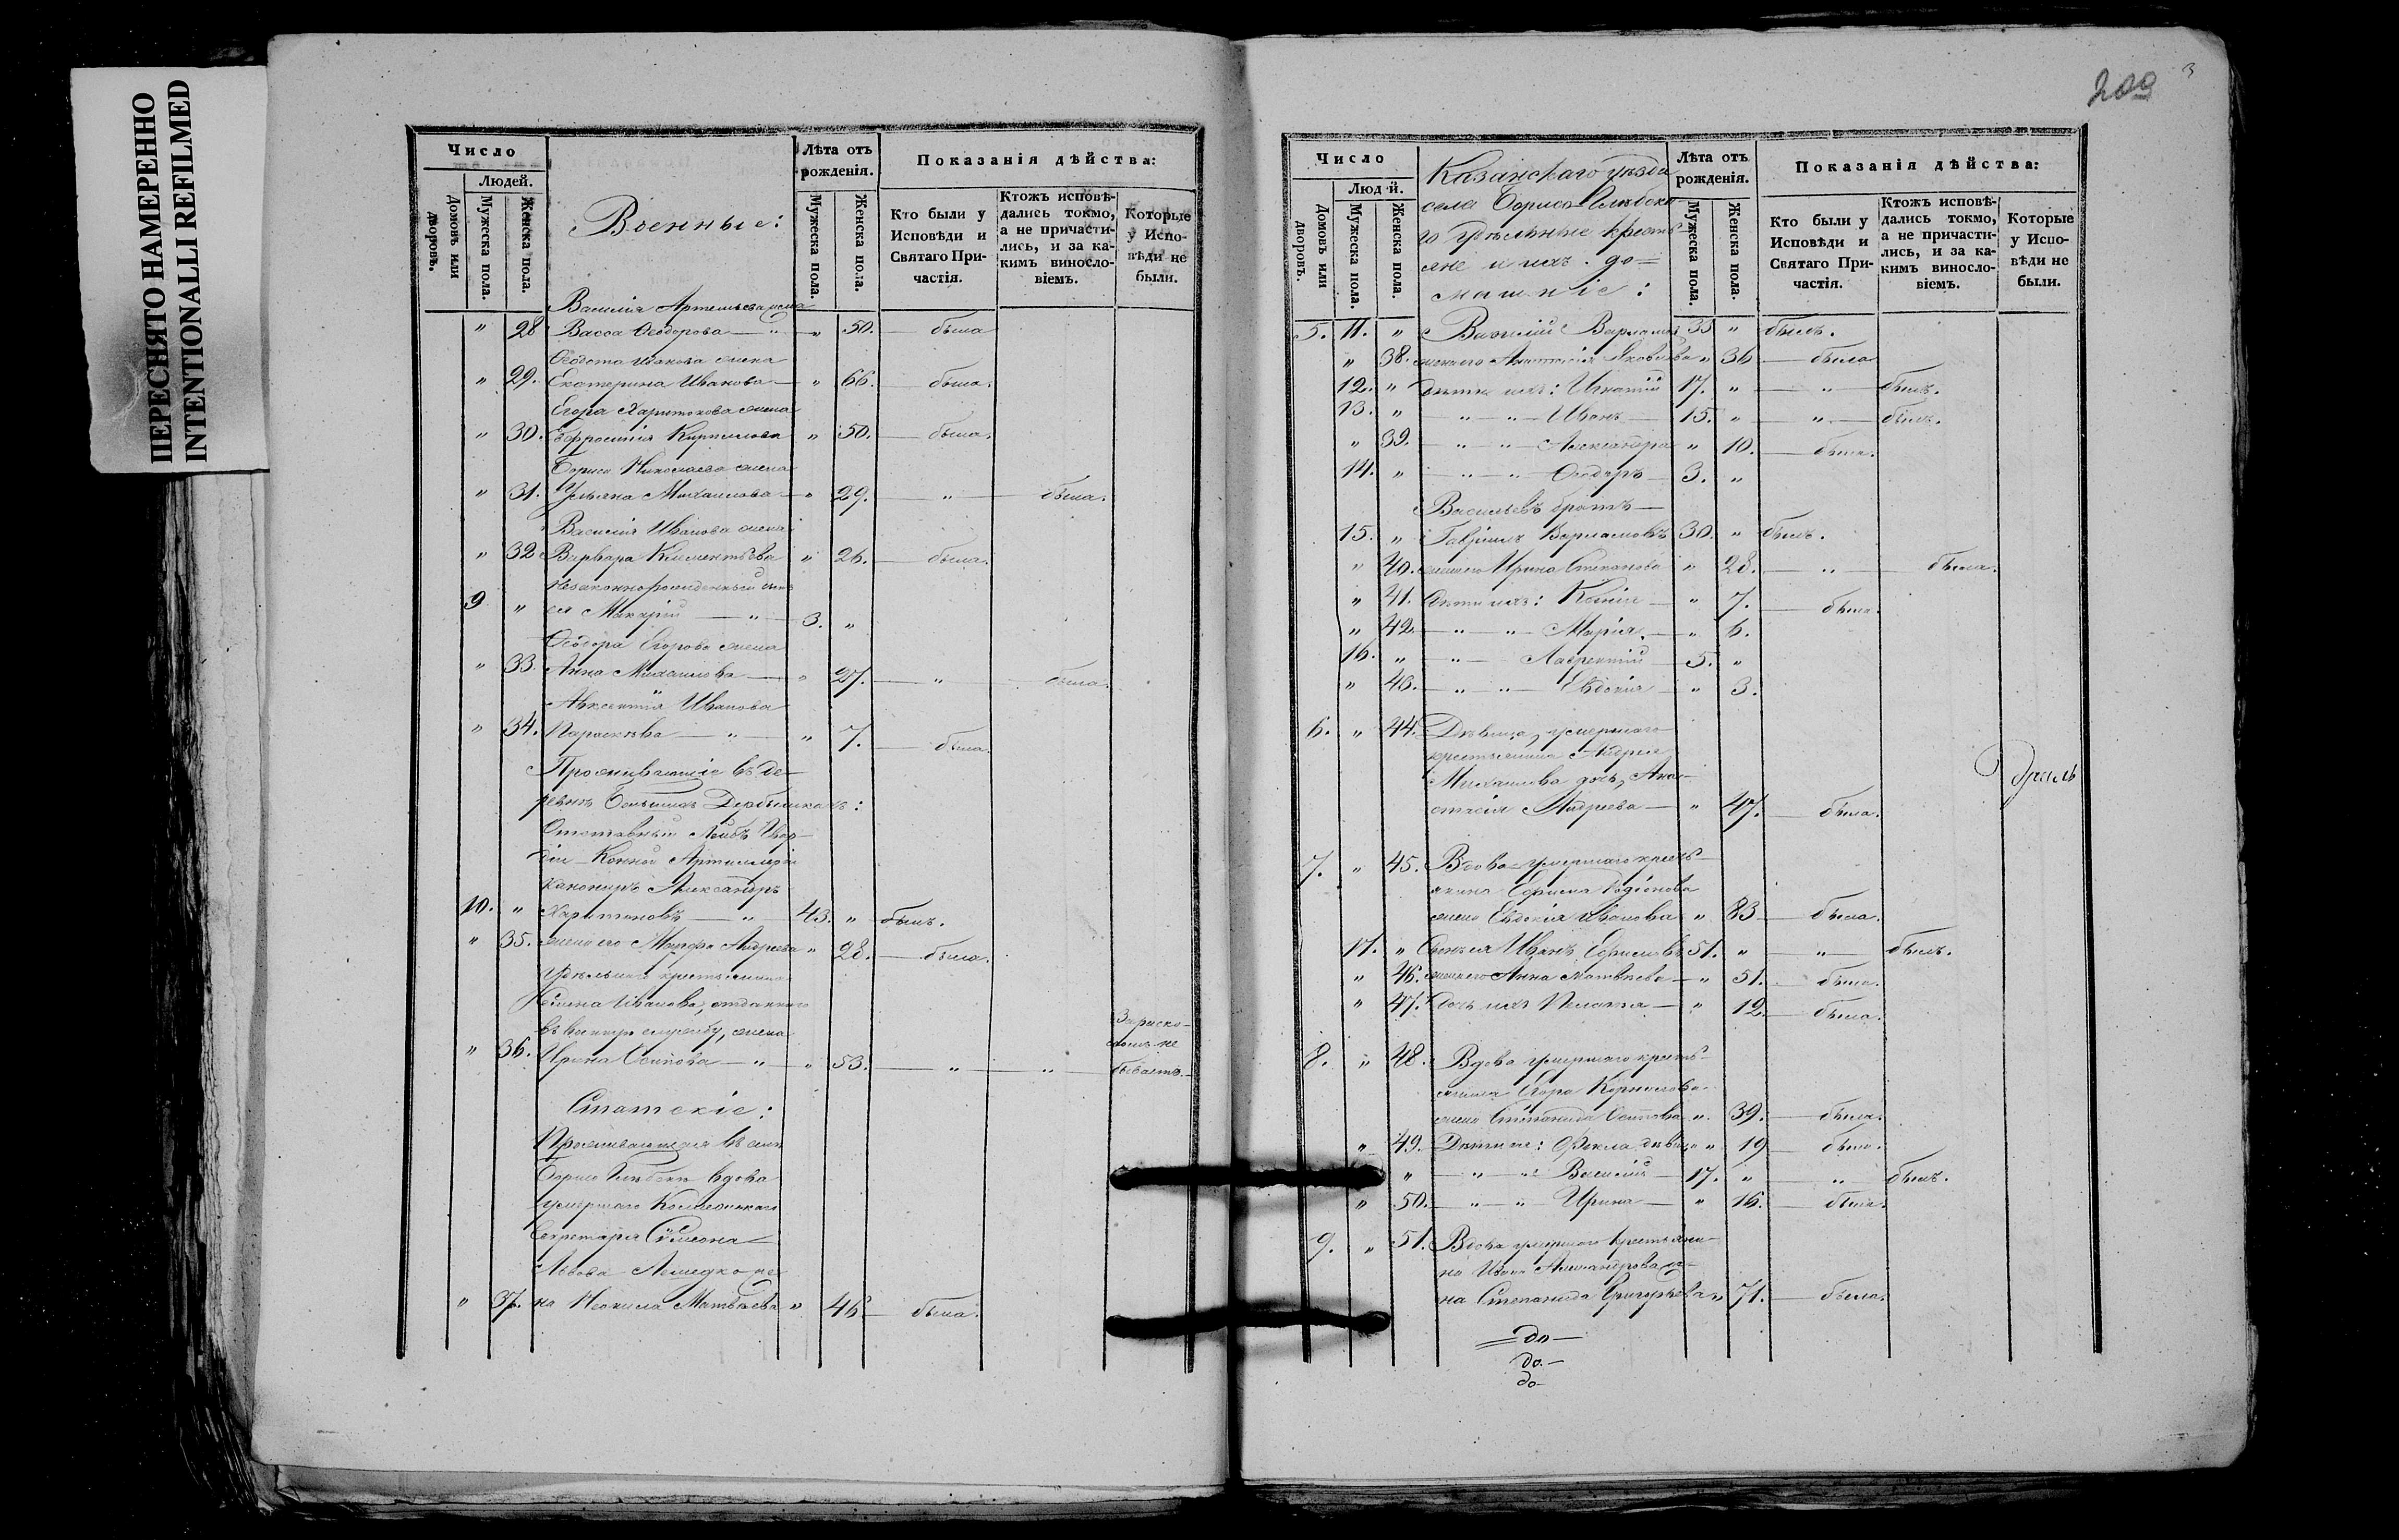 ПЕРЕСНЯТО НАМЕРЕННО
INTENTIONALLI REFILMED
Число
Людей.
Домовъ или дворовъ.
Мужеска пола.
Женска пола.
Военные:
Лѣта отъ рожденія.
Мужеска пола.
Женска пола.
Показанія дѣйства:
Кто были у Исповѣди и Святаго При-
частія.
Ктожъ исповѣ-
дались токмо,
а не причасти-
лись, и за ка-
кимъ винosло-
віемъ.
Которые
у Испо-
вѣди не
были.
Василія Артемьева жена
" 28 Васса Ѳеодорова — " — " 50. — была
Ѳедота Иванова жена
" 29. Екатерина Иванова — " 66. — была.
Егора Харитонова жена
" 30. Евфросинія Кириллова " 50. — была.
Бориса Николаева жена
" 31. Ульяна Михаилова — " 29. — " — была.
Василія Иванова жена
" 32 Варвара Климентьева " 26. — была.
Незаконнорожденный сынъ
9 " ея Макарій — " — 3. "
Ѳеодора Егорова жена
" 33. Анна Михаилова — " 27. — " — была.
Авксентія Иванова
" 34. Параскева — " — " 7. — была.
Проживающіе въ де-
ревнѣ Большихъ Дербышкахъ:
Отставный Лейбъ Гвар-
діи Конной Артиллеріи
Канониръ Александръ
10. " Харитоновъ — " — 43. " былъ.
" 35. жена его Марфа Андреева " 28. — была.
Удѣльнаго крестьянина
Семена Иванова, отданнаго
въ военную службу, жена
" 36. Ирина Осипова — " — " 53. — " — " — За раско-
ломъ не
бываетъ.
Статскіе:
Проживающая въ селѣ
Борисо Глѣбскѣ вдова
умершаго Коллежскаго
Секретаря Симеона
Львова
" 37. на Неонила Матвѣева " 46. — была.
200
3
Число
Люд й.
Домовъ или дворовъ.
Мужеска пола.
Женска пола.
Казанскаго уѣзда
села Борисо-Глѣбска-
го Удѣльные кресть-
яне и ихъ до-
машніе:
Лѣта отъ рожденія.
Мужеска пола.
Женска пола.
Показанія дѣйства:
Кто были у
Исповѣди и
Святаго При-
частія.
Ктожъ исповѣ-
дались токмо,
а не причасти-
лись, и за ка-
кимъ виносло-
віемъ.
Которые
у Испо-
вѣди не
были.
5. 11. " Василій Варламовъ 35 " былъ.
" 38. жена его Анастасія Яковлева " 36 — была
12. " Дѣти ихъ: Игнатій 17. " — " — былъ.
13. " — " — " — Иванъ — 15. " — " — былъ.
" 39. — " — " — Александра " 10. — была.
14. " — " — " — Ѳеодоръ — 3. "
Васильевъ братъ —
15. " Гавріилъ Варламовъ 30. " былъ.
" 40. жена его Ирина Степанова " 28. — " — была.
" 41. Дѣти ихъ: Ксенія — " 7. — была.
" 42. — " — " — Марія. — " 6.
16. " — " — Лаврентій — 5. "
" 43. — " — " — Евдокія — " 3.
6. " 44. Дѣвица, умершаго
крестьянина Андрея
Михаилова дочь, Ана-
стасія Андреева — " 47. — была.
7. " 45. Вдова умершаго кресть-
янина Ефрема Родіонова
жена Евдокія Иванова " 83 — была.
17. " Сынъ ея Иванъ Ефремовъ 51. " — " — былъ.
" 46. жена его Анна Матвѣева — " 51. — была.
" 47. Дочь ихъ Пелагія — " 12. — была.
8. " 48. Вдова умершаго кресть-
янина Егора Корнилова
жена Степанида Осипова " 39. — была.
" 49. Дѣти ея: Ѳекла дѣвица " 19 — была.
" — " — " Василій — 17. " — " — былъ.
" 50. — " — " — Ирина — " 16. — была.
9. " 51. Вдова умершаго крестьяни-
на Ивана Александрова же-
на Степанида Григорьева " 71. — была.
— до —
до. —
до —